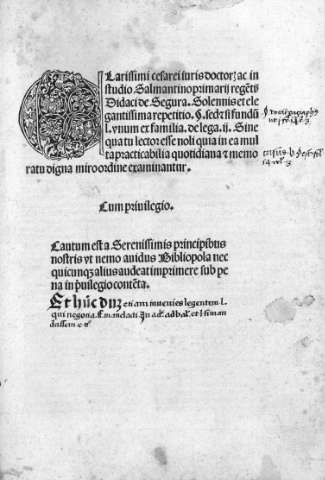 Clarissimi cesarei iuris doctoꝛꝫ ac in
studio Salmantino primarij regẽtis
Didaci de Segura. Solennis et ele
gantissima repetitio. §. sed si fundũ
l. vnum ex familia. de lega. ij. Sine
qua tu lector esse noli quia in ea mul
ta practicabilia quotidiana ⁊ memo
ratu digna miro ordine examinantur.
Cum priuilegio.
Cautum est a Serenissimis principibus
nostris vt nemo auidus Bibliopola nec
quicunqꝫ alius audeat imprimere sub pe
na in p̃uilegio contẽta.
etiam inuenies legentem l.
qui negotia.